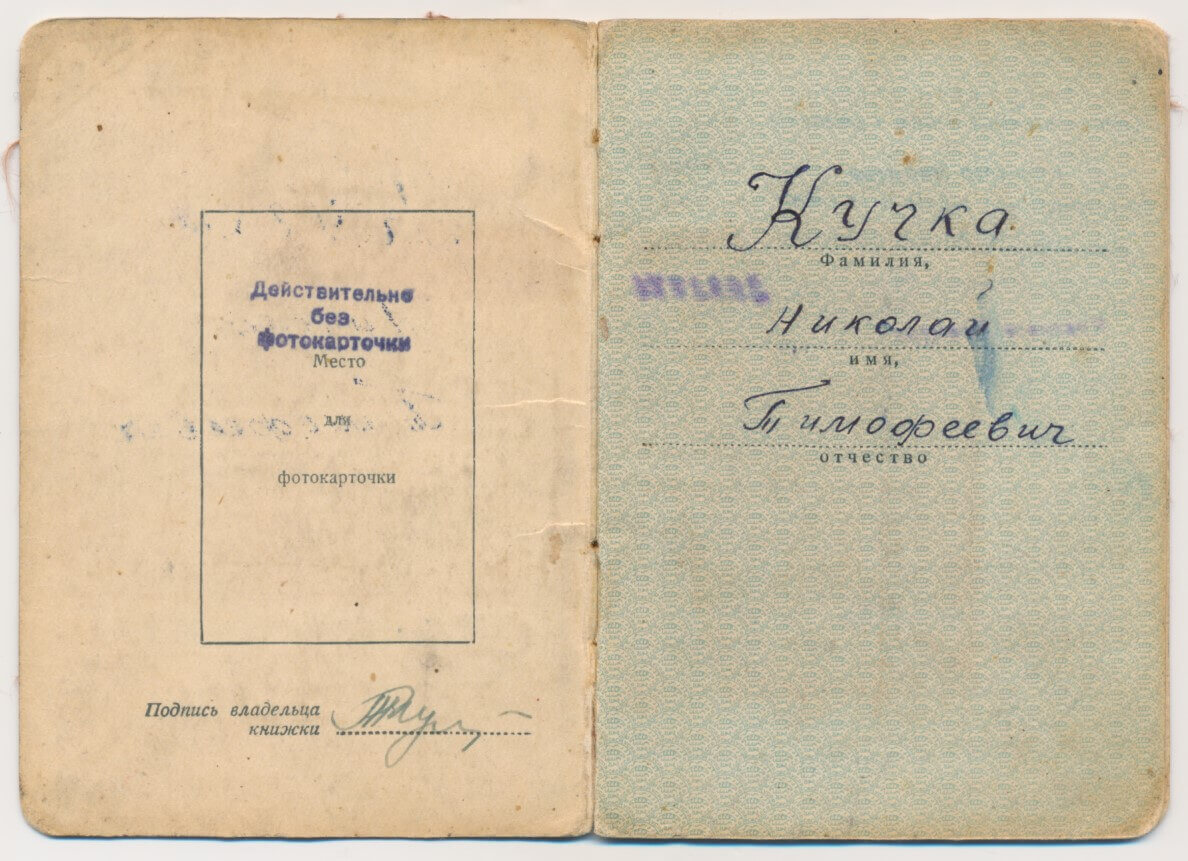 Действительно
без
фотокарточки
Место
для
фотокарточки
Подпись владельца
книжки
Кучка
Фамилия,
Николай
имя,
Тимофеевич
отчество